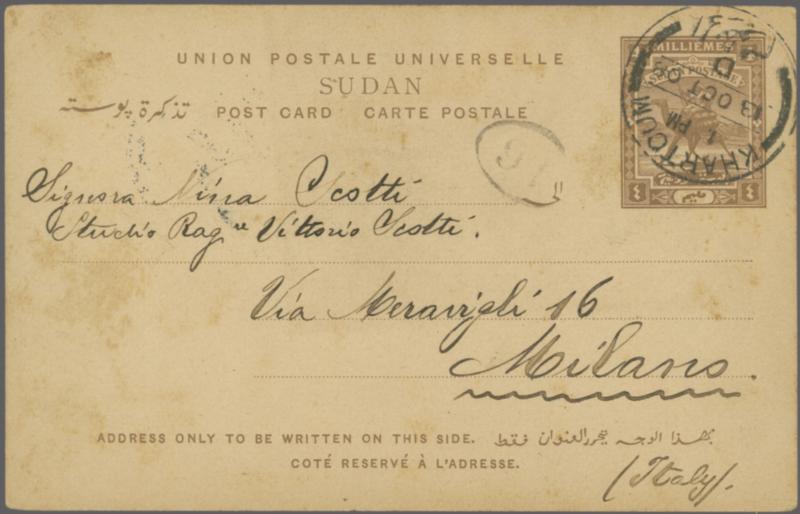 UNION POSTALE UNIVERSELLE
SUDAN
تذكرة پوسته POST CARD CARTE POSTALE
MILLIÈMES
٤ ٤
KHARTOUM
D
13 OCT
1 PM
16
Signora Nina Scotti
Studio Rag. Vittorio Scotti.
Via Meravigli 16
Milano.
ADDRESS ONLY TO BE WRITTEN ON THIS SIDE. بهذا الوجه يحرر العنوان فقط
COTÉ RESERVÉ À L'ADRESSE.
(Italy).